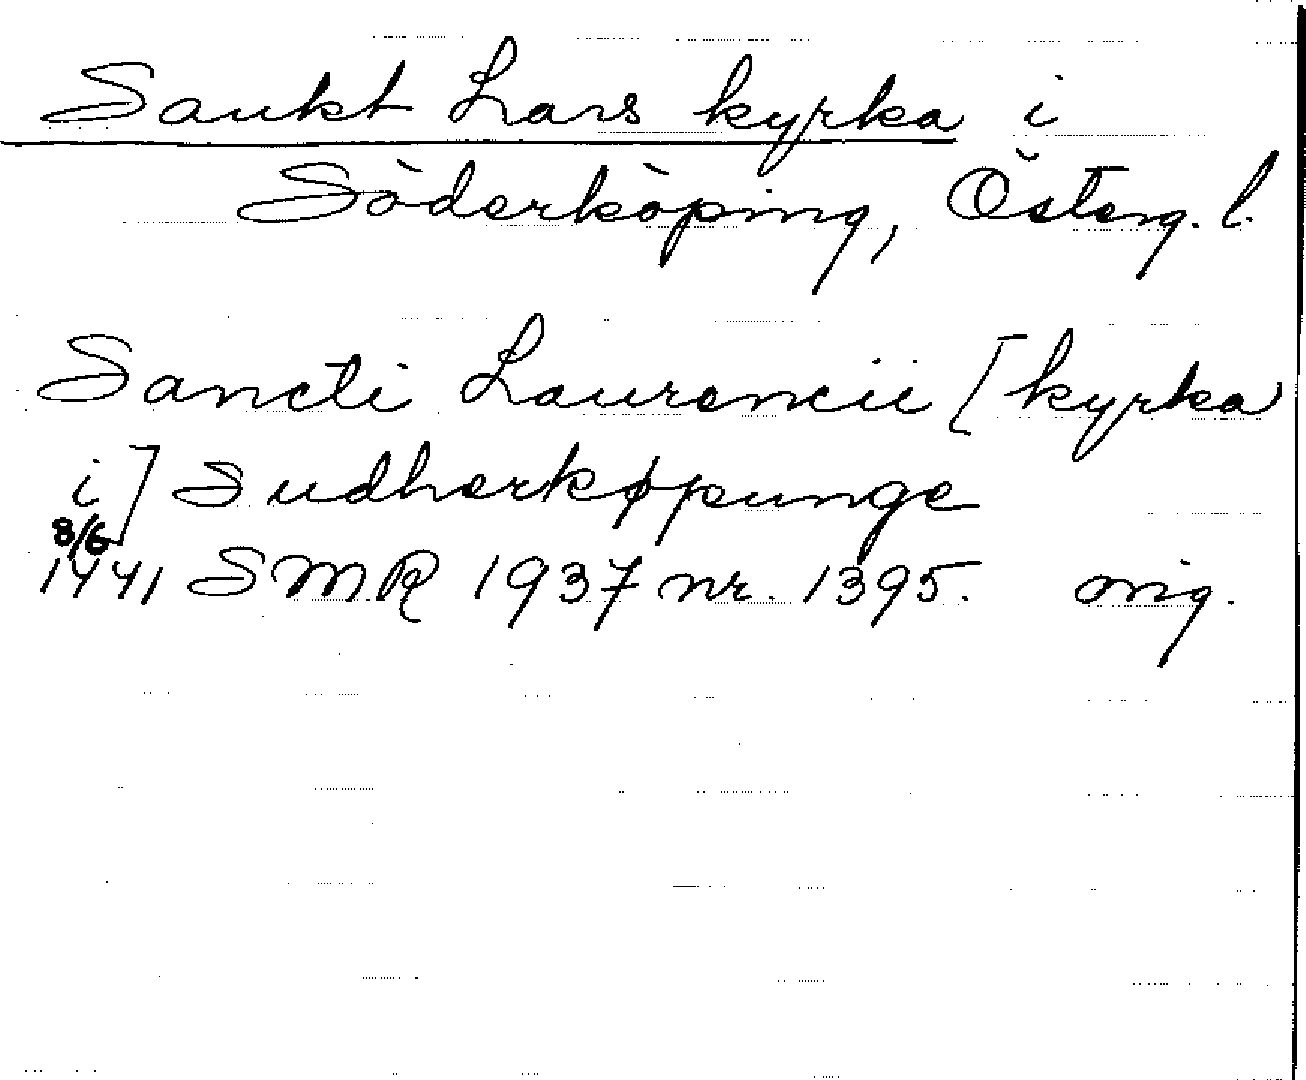 Sankt Lars kyrka i
Söderköping, Österg. l.
Sancti Laurencii [kyrka
i] Sudherkøpunge
8/6
1441 SMR 1937 nr. 1395. orig.